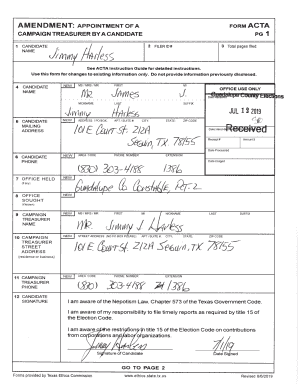 AMENDMENT: APPOINTMENT OF A CAMPAIGN TREASURER BY A CANDIDATE
FORM ACTA
PG 1
1 CANDIDATE NAME
Jimmy Harless
2 FILER ID #
3 Total pages filed:
See ACTA Instruction Guide for detailed instructions.
Use this form for changes to existing information only. Do not provide information previously disclosed.
4 CANDIDATE NAME
NEW
MS / MRS / MR FIRST MI
Mr. James J
NICKNAME LAST SUFFIX
Jimmy Harless
OFFICE USE ONLY
Guadalupe County Elections
JUL 2019
Received
5 CANDIDATE MAILING ADDRESS
NEW
ADDRESS / PO BOX; APT / SUITE #; CITY; STATE; ZIP CODE
101 E Court St. 212A
Seguin, TX 78155
6 CANDIDATE PHONE
NEW
AREA CODE PHONE NUMBER EXTENSION
(830) 303-4188 1386
7 OFFICE HELD
NEW
Guadalupe Co Constable, Pct-2
8 OFFICE SOUGHT
NEW
9 CANDIDATE CAMPAIGN TREASURER NAME
NEW
MS / MRS / MR FIRST MI NICKNAME LAST SUFFIX
Mr Jimmy J Harless
10 CAMPAIGN TREASURER STREET ADDRESS
(residence or business)
NEW
101 E Court St. 212A Seguin, TX 78155
11 CAMPAIGN TREASURER PHONE
NEW
AREA CODE PHONE NUMBER EXTENSION
(830) 303-4188 1386
12 CANDIDATE SIGNATURE
I am aware of the Nepotism Law, Chapter 573 of the Texas Government Code.
I am aware of my responsibility to file timely reports as required by title 15 of the Election Code.
I am aware of the restrictions in title 15 of the Election Code on contributions from corporations and labor organizations.
Signature of Candidate
7/1/19
Date Signed
GO TO PAGE 2
Forms provided by Texas Ethics Commission
www.ethics.state.tx.us